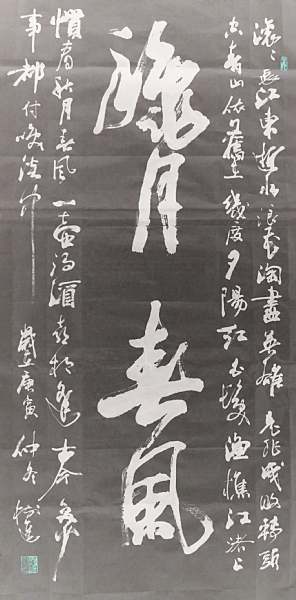 滾〻長江東逝水浪花淘盡英雄是非成敗轉頭
空青山依舊在幾度夕陽紅白髮漁樵江渚上
龝月春風
慣看秋月春風一壺濁酒喜相逢古今多少
事都付笑談中 歲在庚寅仲冬